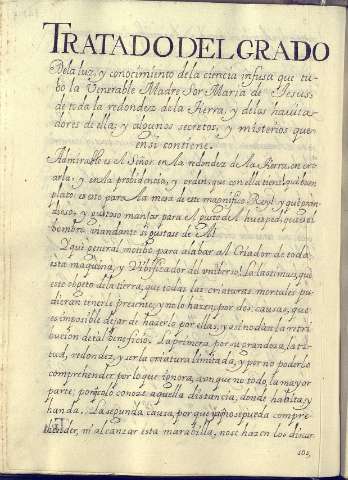 TRATADO DEL GRADO
De la luz, y conocimiento de la ciencia infusa que tu-
bo la Venerable Madre Sor Maria de Jesuss
de toda la redondez de la tierra, y delos havita-
dores de ella; y algunos secretos, y misterios que
en si contiene.
Admirable es el Señor en la redondez de la tierra, en cri-
arla, y en la probidencia, y orden, que con ella tiene! qué buen
plato es este para la mesa de este magnifico Rey! y qué gran-
dioso, y gustoso manjar para el gusto del huesped, que es el
hombre viandante si gustase de èl!
Y qué general motibo para alabar al Criador de toda
esta maquina, y Vibificador del vniberso! la lastima es, que
este objeto de la tierra, que todas las criaturas mortales pu-
dieran tenerle presente, y no lo hazen, por dos causas, que
es imposible dejar de hazerlo por ellas, y asi no dan la retri-
bucion de tal beneficio. La primera, por su grandeza, lati-
tud, redondez, y ser la criatura limitada, y por no poderlo
comprehender, por lo que ignora, aun que no todo, la mayor
parte; porque solo conoze aquella distancia, donde habita, y
handa. La segunda causa, por que ya que no se pueda compre-
hender, ni alcanzar esta marabilla, no se hazen los discur-
sos,